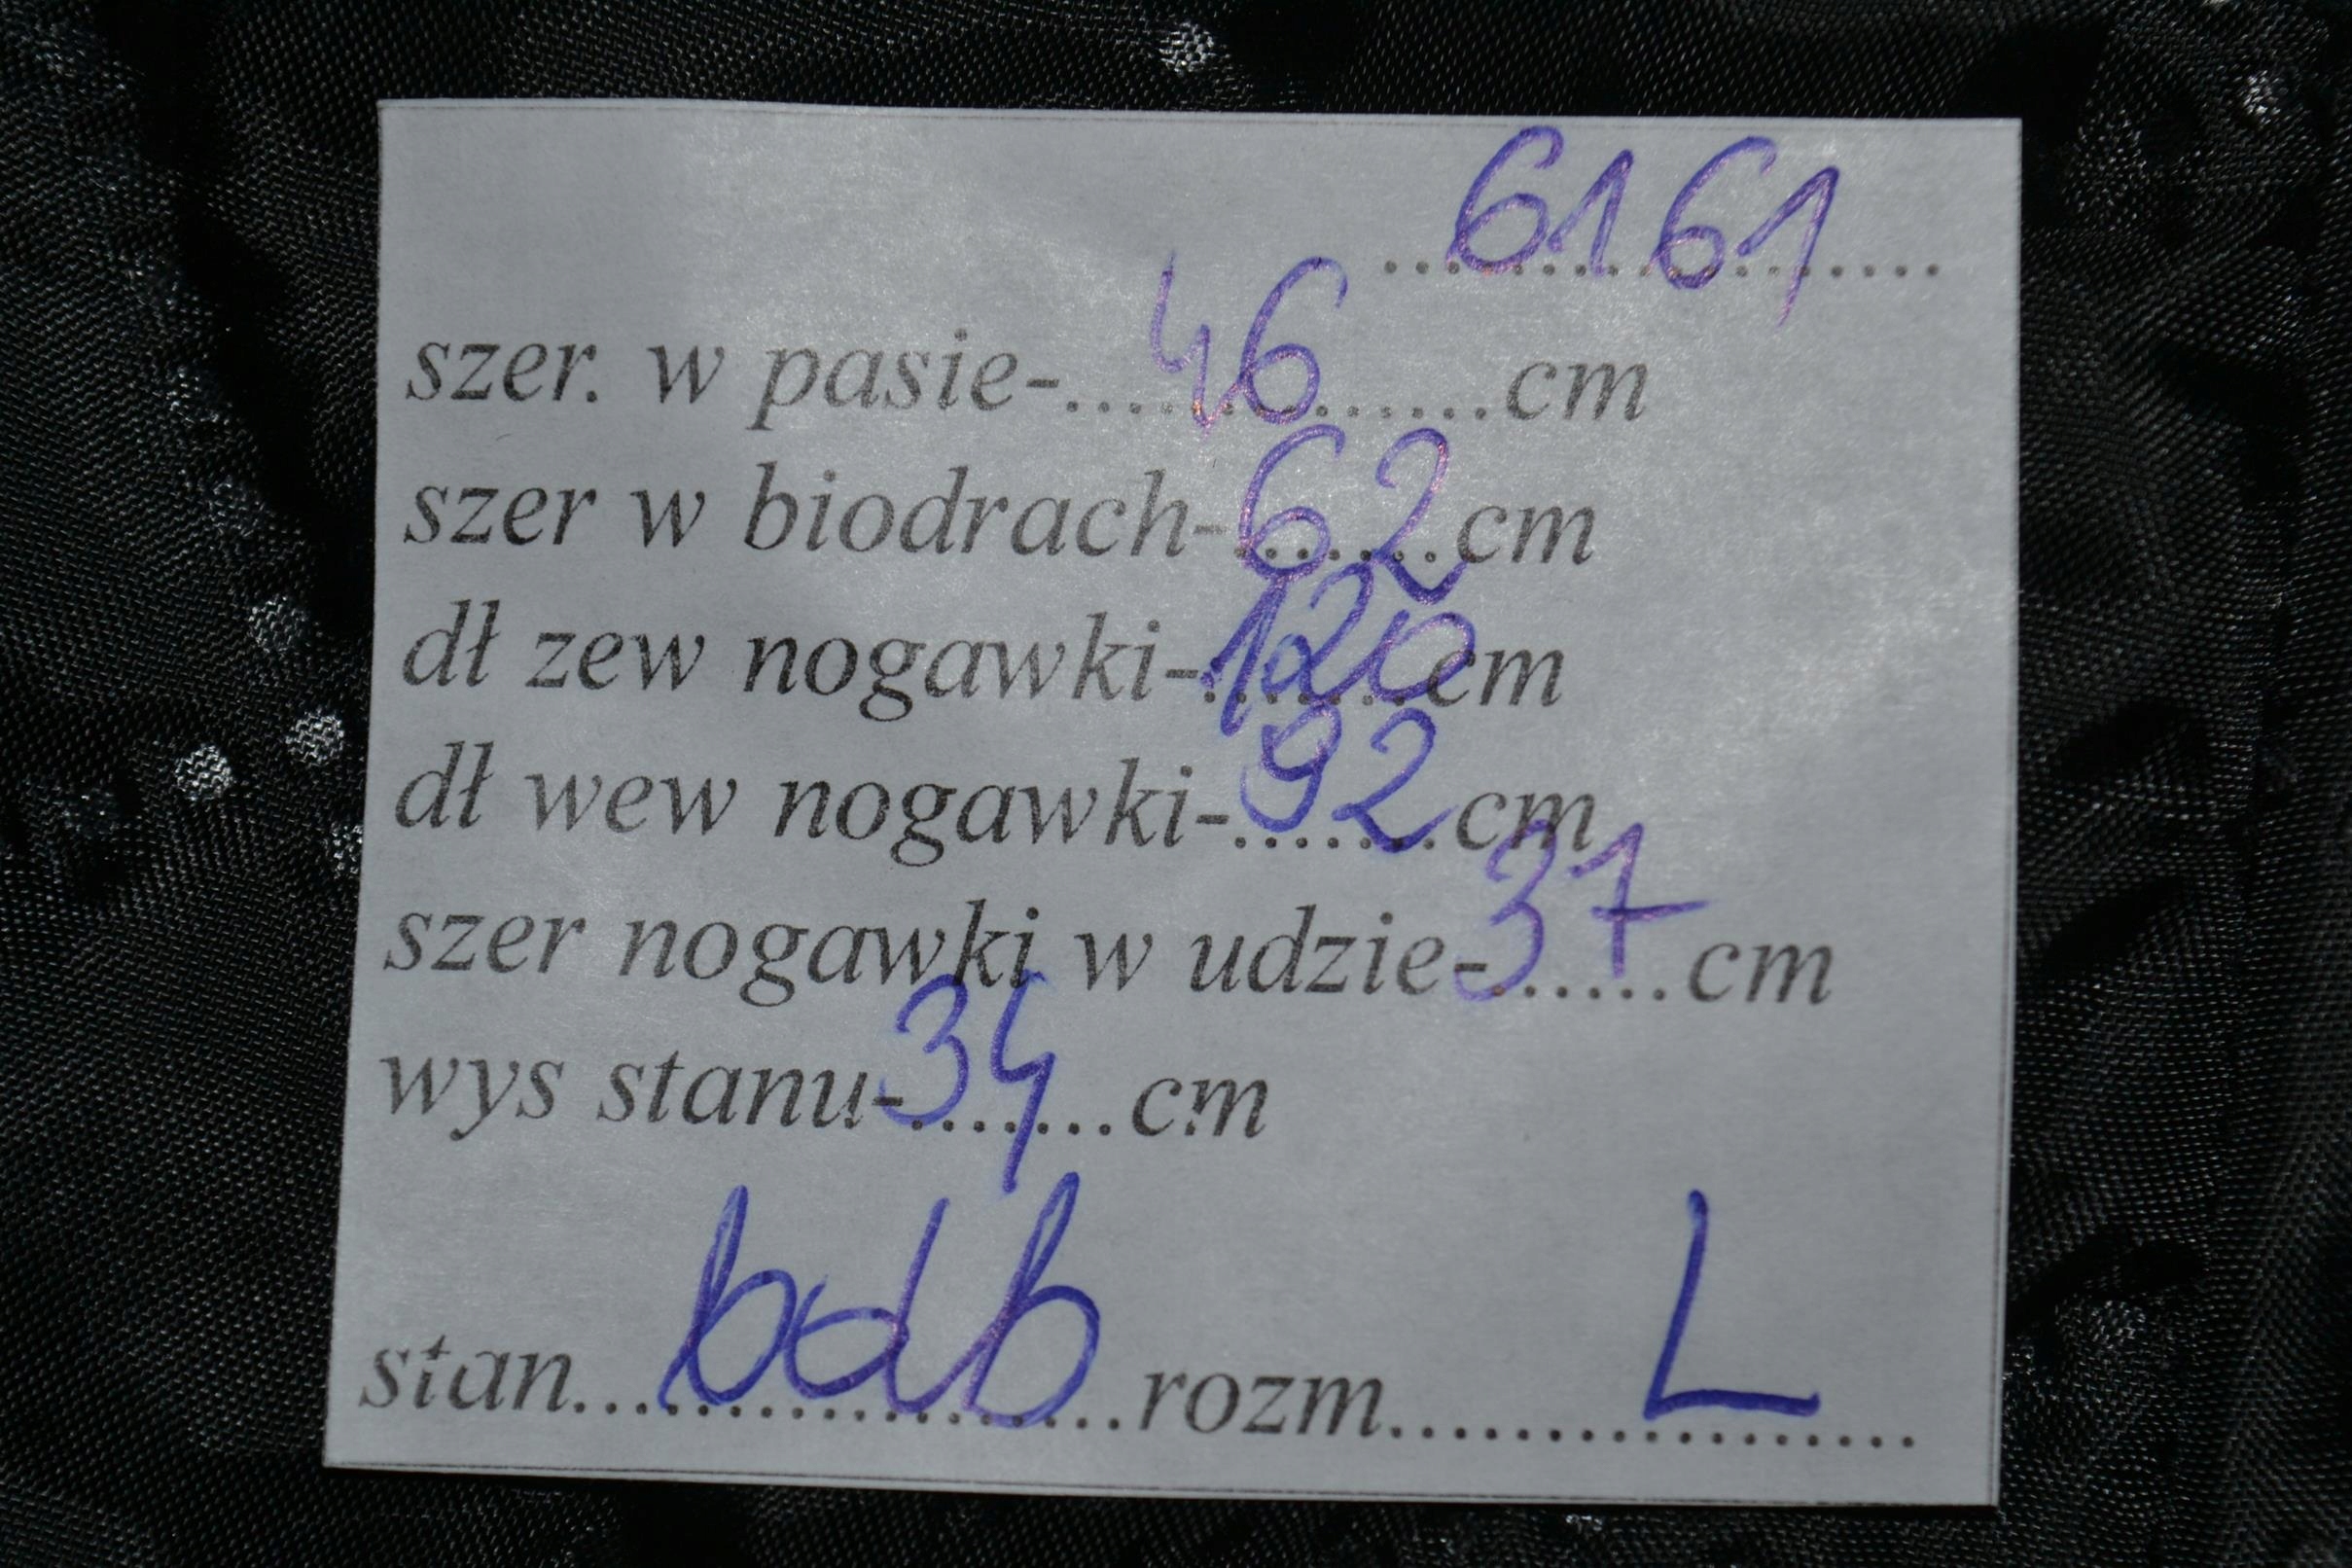 6161
szer. w pasie-....46.......cm
szer w biodrach-62cm
dł zew nogawki-120cm
dł wew nogawki-92cm
szer nogawki w udzie-37.....cm
wys stanu-34.....cm
stan...bdb.rozm........L........